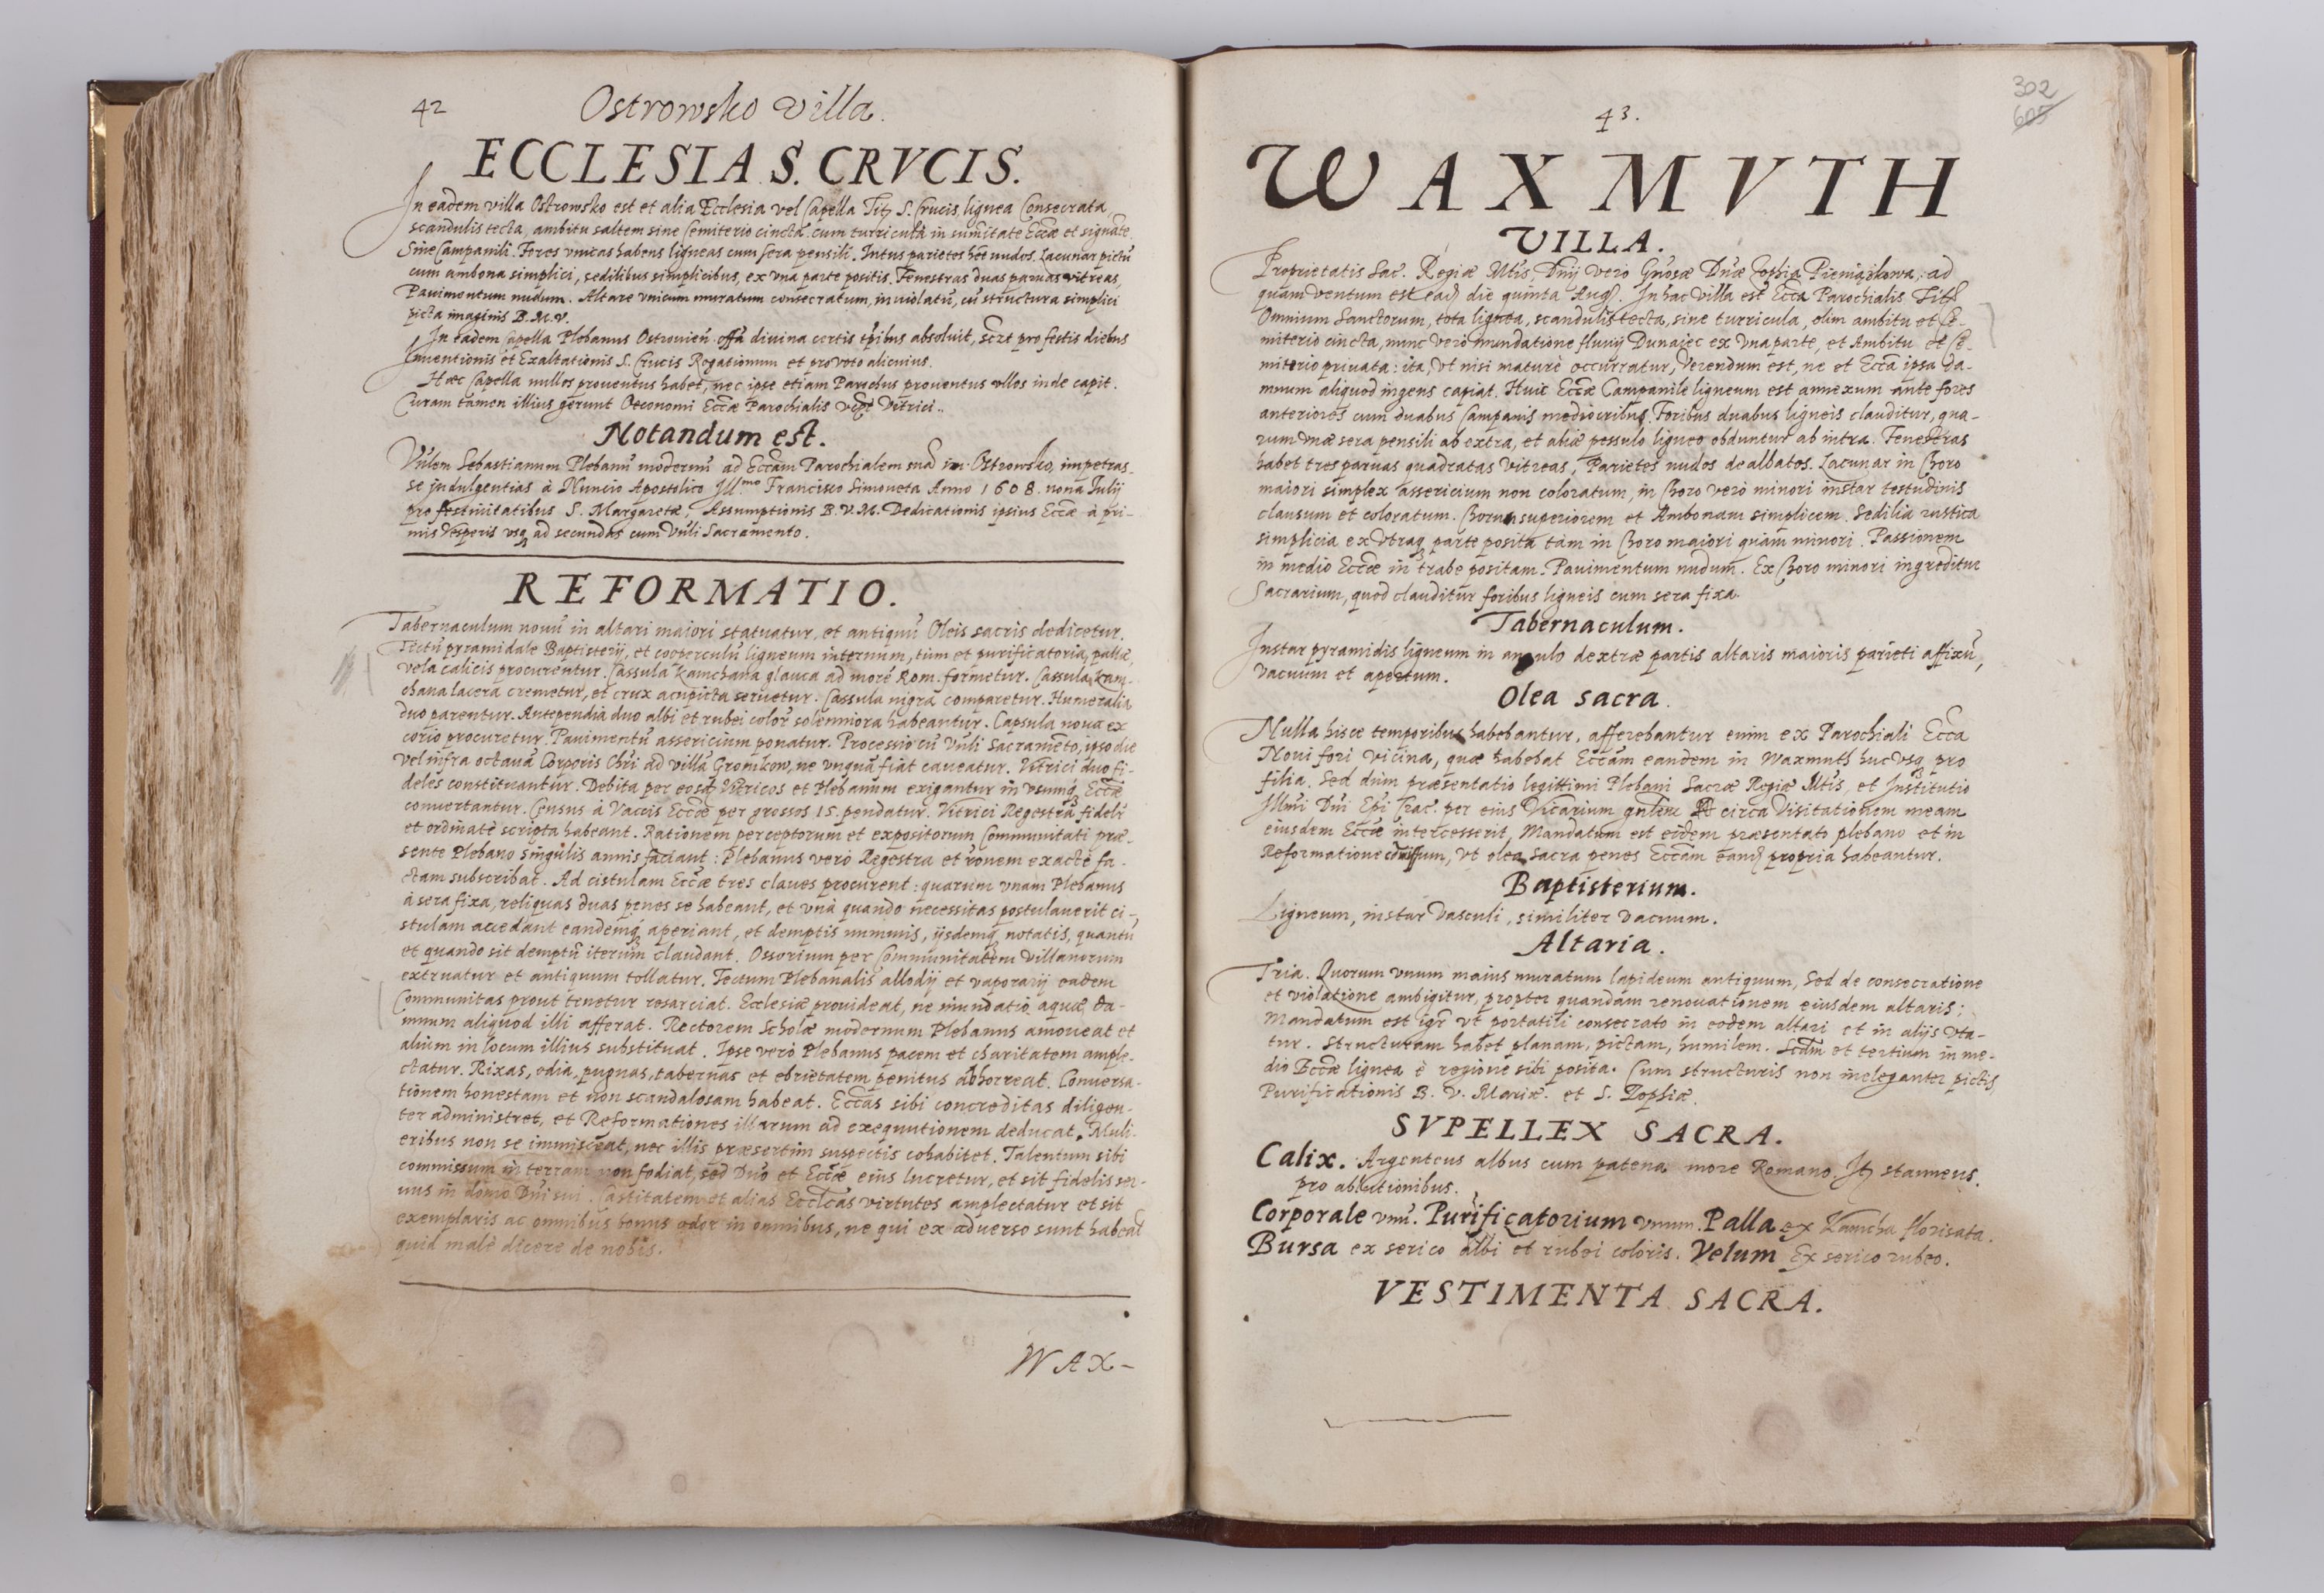 42
Ostrowsko villa.
ECCLESIA S. CRVCIS.
In eadem villa Ostrowsko est et alia Ecclesia vel Capella Titƺ S. Crucis, lignea Consecrata,
scandulis tecta, ambitu saltem sine Cemiterio cincta. cum turricula in sum̃itate Eccæ et signate.
Sine Campanili. Fores vnicas habens ligneas cum sera pensili. Intus parietes hẽt nudos. Lacunar pictũ
cum ambona simplici, sedilibus simplicibus, ex vna parte positis. Fenestras duas paruas vitreas,
Pauimentum nudum. Altare vnicum muratum consecratum, inuiolatũ, cũ structura simplici
picta imaginis B. M. V.
In eadem Capella Plebanus Ostrouien̄ offa diuina certis tp̄ibus absoluit, sczt pro festis diebus
Inuentionis et Exaltationis S. Crucis Rogationum et pro voto alicuius.
Hæc Capella nullos prouentus habet, nec ipse etiam Parochus prouentus vllos inde capit.
Curam tamen illius gerunt Oeconomi Eccæ Parochialis vczt Vitrici.
Notandum est.
Vn̄len Sebastianum Plebanũ modernũ ad Eccãm Parochialem suã in Ostrowsko, impetras-
se indulgentias à Nuncio Apostolico Ill.mo Francisco Simoneta Anno 1608. nona Iulij
pro festiuitatibus S. Margaretæ, Assumptionis B. V. M. Dedicationis ipsius Eccæ à pri-
mis Vesperis vsqƺ ad secundas cum Vn̄li Sacramento.
REFORMATIO.
Tabernaculum nouũ in altari maiori statuatur, et antiquũ Oleis sacris dedicetur.
Tectũ pyramidale Baptisterij, et cooperculũ ligneum internum, tùm et purificatoria, pallæ,
vela calicis procurentur. Cassula Kamchana glauca ad morẽ Rom. formetur. Cassula Kam-
chana lacera cremetur, et crux acupicta seruetur. Cassula nigra comparetur. Humeralia
duo parentur. Antependia duo albi et rubei color̄ solenniora habeantur. Capsula noua ex
corio procuretur. Pauimentũ assericium ponatur. Processio cũ Vn̄li Sacramẽto, ipso die
vel infra octauã Corporis Chr̄i ad villã Gronikow, ne vnquã fiat caueatur. Vitrici duo fi-
deles constituantur. Debita per eosqƺ Vitricos et Plebanum exigantur in vsumqƺ Eccæ
conuertantur. Census à Vaccis Eccæ per grossos 15. pendatur. Vitrici Regestrũ fidelr̄
et ordinatè scripta habeant. Rationem perceptorum et expositorum Communitati præ-
sente Plebano singulis annis faciant: Plebanus verò Regestra et rõnem exactè fa-
ctam subscribat. Ad cistulam Eccæ tres claues procurent: quarum vnam Plebanus
à sera fixa, reliquas duas penes se habeant, et vnà quando necessitas postulauerit ci-
stulam accedant eandemqƺ aperiant, et demptis nummis, ijsdemqƺ notatis, quantũ
et quando sit demptũ iterùm claudant. Ossorium per Communitatem villanorum
extruatur et antiquum tollatur. Tectum Plebanalis allodij et vaporarij eadem
Communitas prout tenetur resarciat. Ecclesiæ prouideat, ne inundatio aquæ, da-
mnum aliquod illi afferat. Rectorem Scholæ modernum Plebanus amoueat et
alium in locum illius substituat. Ipse verò Plebanus pacem et charitatem ample-
ctatur. Rixas, odia, pugnas, tabernas et ebrietatem penitus abhorreat. Conuersa-
tionem honestam et non scandalosam habeat. Eccãs sibi concreditas diligen-
ter administret, et Reformationes illarum ad exequutionem deducat. Muli-
eribus non se immisceat, nec illis præsertim suspectis cohabitet. Talentum sibi
commissum in terram non fodiat, sed Dn̄o et Eccæ eius lucretur, et sit fidelis ser-
uus in domo Dn̄i sui. Castitatem et alias Ecclcãs virtutes amplectatur et sit
exemplaris ac omnibus bonus odor in omnibus, ne qui ex aduerso sunt habeãt
quid malè dicere de nobis.
WAX-
302
605
43.
WAXMVTH
VILLA.
Proprietatis Sac. Regiæ Mt̄is, Dn̄ij verò Gn̄osæ Dn̄æ Zophiæ Pieniążkowa, ad
quam ventum est eadƺ die quinta Augƺ. In hac villa est Ecca Parochialis Titƺ
Omnium Sanctorum, tota lignea, scandulis tecta, sine turricula, olim ambitu et Ce-
miterio cincta, nunc verò inundatione fluuij Dunaiec ex vna parte, et Ambitu et Ce-
miterio priuata: ita, vt nisi maturè occurratur, verendum est, ne et Ecca ipsa da-
mnum aliquod ingens capiat. Huic Eccæ Campanile ligneum est annexum ante fores
anteriores cum duabus Campanis mediocribus. Foribus duabus ligneis clauditur, qua-
rum vnæ sera pensili ab extra, et aliæ pessulo ligneo obduntur ab intra. Fenestras
habet tres paruas quadratas Vitreas, Parietes nudos dealbatos. Lacunar in Choro
maiori simplex assericium non coloratum, in Choro verò minori instar testudinis
clausum et coloratum. Chorum superiorem et Ambonam simplicem. Sedilia rustica
simplicia ex vtraqƺ parte posita tàm in Choro maiori quàm minori. Passionem
in medio Eccæ in trabe positam. Pauimentum nudum. Ex Choro minori ingreditur
Sacrarium, quod clauditur foribus ligneis cum sera fixa.
Tabernaculum.
Instar pyramidis ligneum in angulo dextræ partis altaris maioris parieti affixũ,
vacuum et apertum.
Olea sacra.
Nulla hisce temporibus habebantur, afferebantur enim ex Parochiali Ecca
Noui fori vicina, quæ habebat Eccãm eandem in Waxmuth hucvsqƺ pro
filia. Sed dùm præsentatio legittimi Plebani Sacræ Regiæ Mt̄is, et Institutio
Illmi Dn̄i Ep̄i Crac. per eius Vicarium gn̄lem circa Visitationem meam
eiusdem Eccæ intercesserit, Mandatum est eidem præsentato plebano et in
Reformatione com̃issum, vt olea Sacra penes Eccãm eandƺ propria habeantur.
Baptisterium.
Ligneum, instar Vasculi, similiter vacuum.
Altaria.
Tria. Quorum vnum maius muratum lapideum antiquum, sed de consecratione
et violatione ambigitur, propter quandam renouationem eiusdem altaris;
Mandatum est igr̄ vt portatili consecrato in eodem altari et in alijs vta-
tur. Structuram habet planam, pictam, humilem. Scdm et tertium in me-
dio Eccæ lignea è regione sibi posita. Cum structuris non ineleganter pictis,
Purificationis B. V. Mariæ. et S. Zophiæ.
SVPELLEX SACRA.
Calix. Argenteus albus cum patena more Romano. Itƺ stanneus.
pro ablutionibus.
Corporale vnũ. Purificatorium vnum. Palla ex Kamcha florisata.
Bursa ex serico albi et rubei coloris. Velum Ex serico rubeo.
VESTIMENTA SACRA.